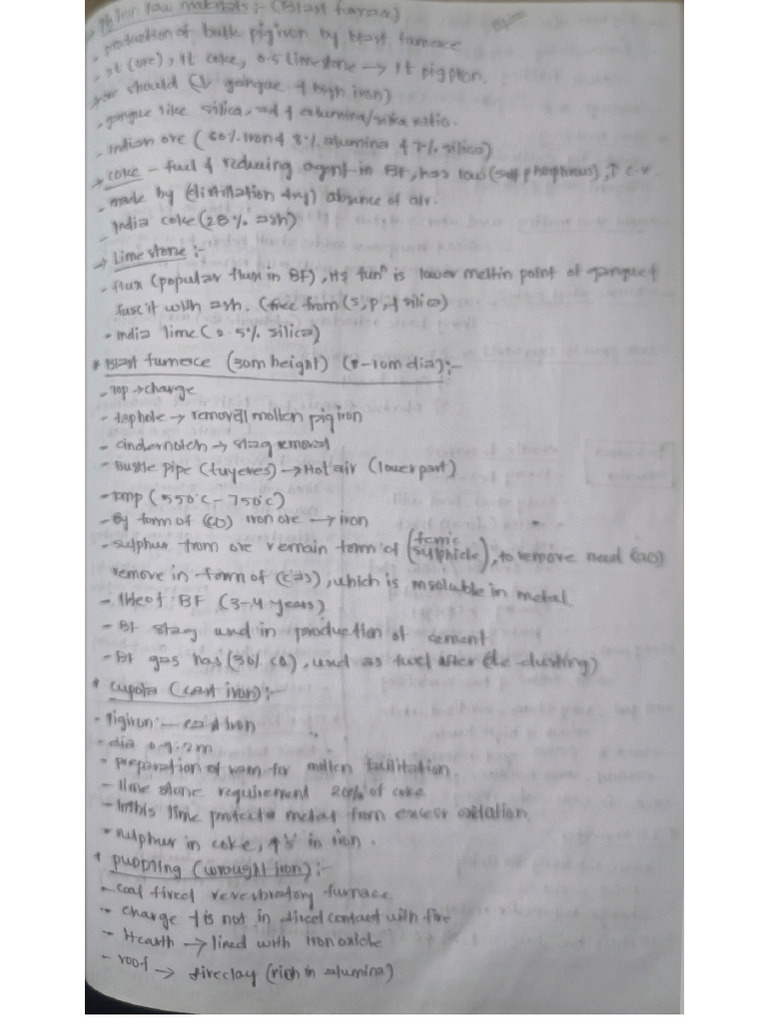 Pig iron raw materials :- (Blast furnace)
- production of bulk pig iron by blast furnace
- 2t (ore), 1t coke, 0.5 limestone → 1t pig iron.
- ore should (↓ gangue & high iron)
- gangue like silica, and & alumina/silica ratio.
- Indian ore (60% iron & 3% alumina & 7% silica)
→ coke - fuel & reducing agent in BF, has low (sulf phosphorous), ↑ c.v.
- made by (distillation dry) absence of air.
- India coke (28% ash)
→ Lime stone :-
- flux (popular flux in BF), its funⁿ is lower meltin point of gangue &
fuse it with ash. (free from (S, P, & silic)
- India lime (0.5% silica)
* Blast furnace (30m height) (8-10m dia) :-
- Top → charge
- taphole → removal mollen pig iron
- cinder notch → slag removal
- Bustle pipe (tuyeres) → Hot air (lower part)
- tmp (550°C - 750°C)
- By form of (CO) iron ore → iron
- sulphur from ore remain form of (ferric sulphide), to remove need (CaO)
remove in form of (CaS), which is insoluble in metal.
- life of BF (3-4 years)
- BF slag used in production of cement
- BF gas has (30% CO), used as fuel after (de dusting)
* cupola (cast iron) :-
- Pigiron — cast iron
- dia
- preparation of for mollen facilitation.
- lime stone requirement 20% of coke
- In this lime protects metal from excess oxidation
- sulphur in coke, ↑'s in iron.
* puppling (wrought iron) :-
- coal fired reverbratory furnace.
- charge is not in direct contact with fire
- Hearth → lined with iron oxide
- roof → fireclay (rich in alumina)